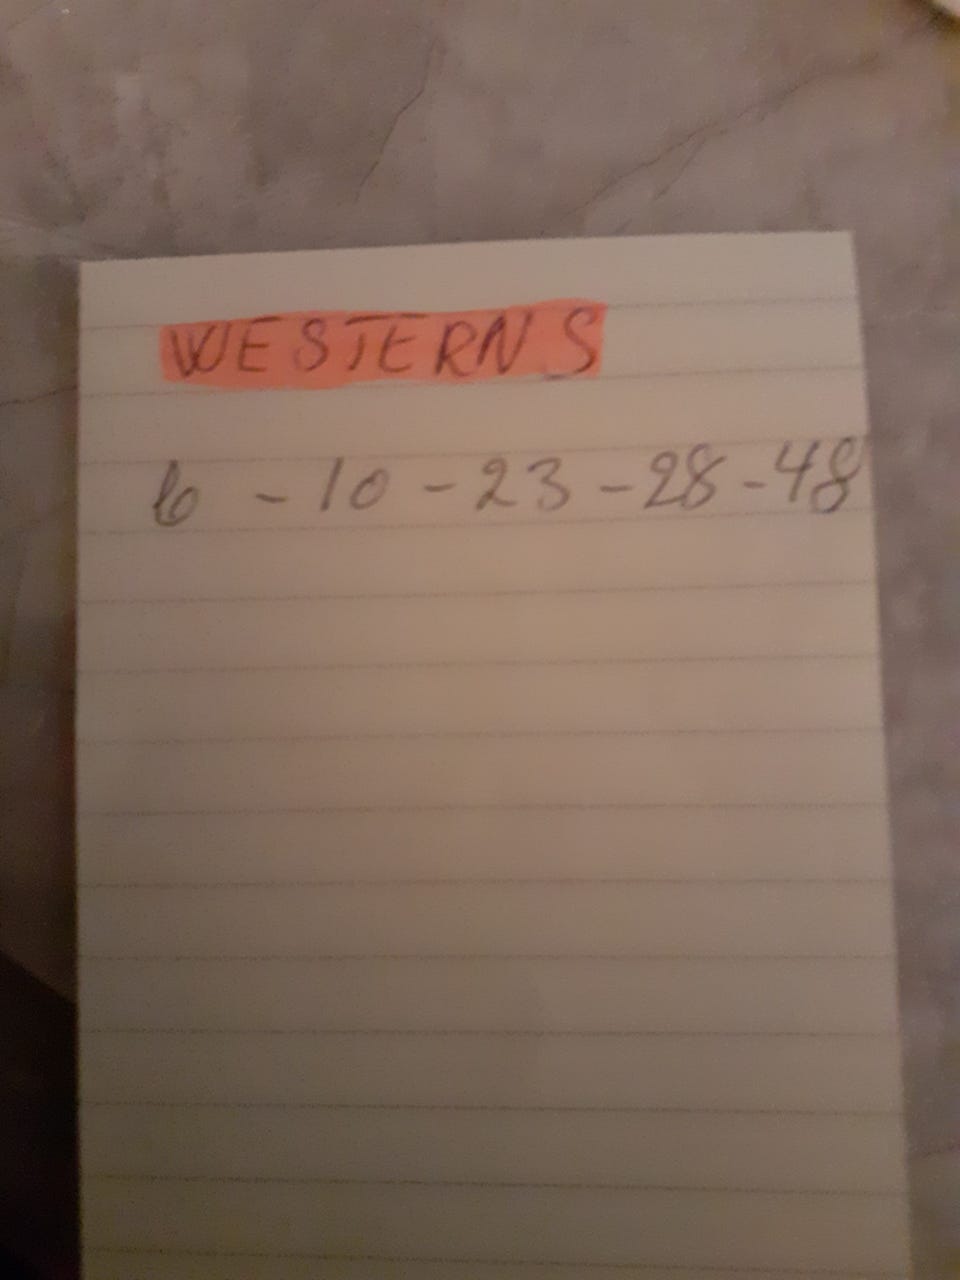 WESTERNS
6 - 10 - 23 - 28 - 48